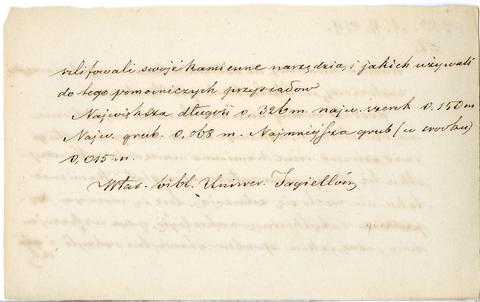 szlifowali swoje kamienne narzędzia, i jakich używali
do tego pomocniczych przyrządów
Największa długość 0,326 m. najw. szerok 0,150 m
Najw. grub. 0,068 m. Najmniejsza grub (w środku)
0,015 m.
Włas. bibl. Uniwer. Jagiellóń